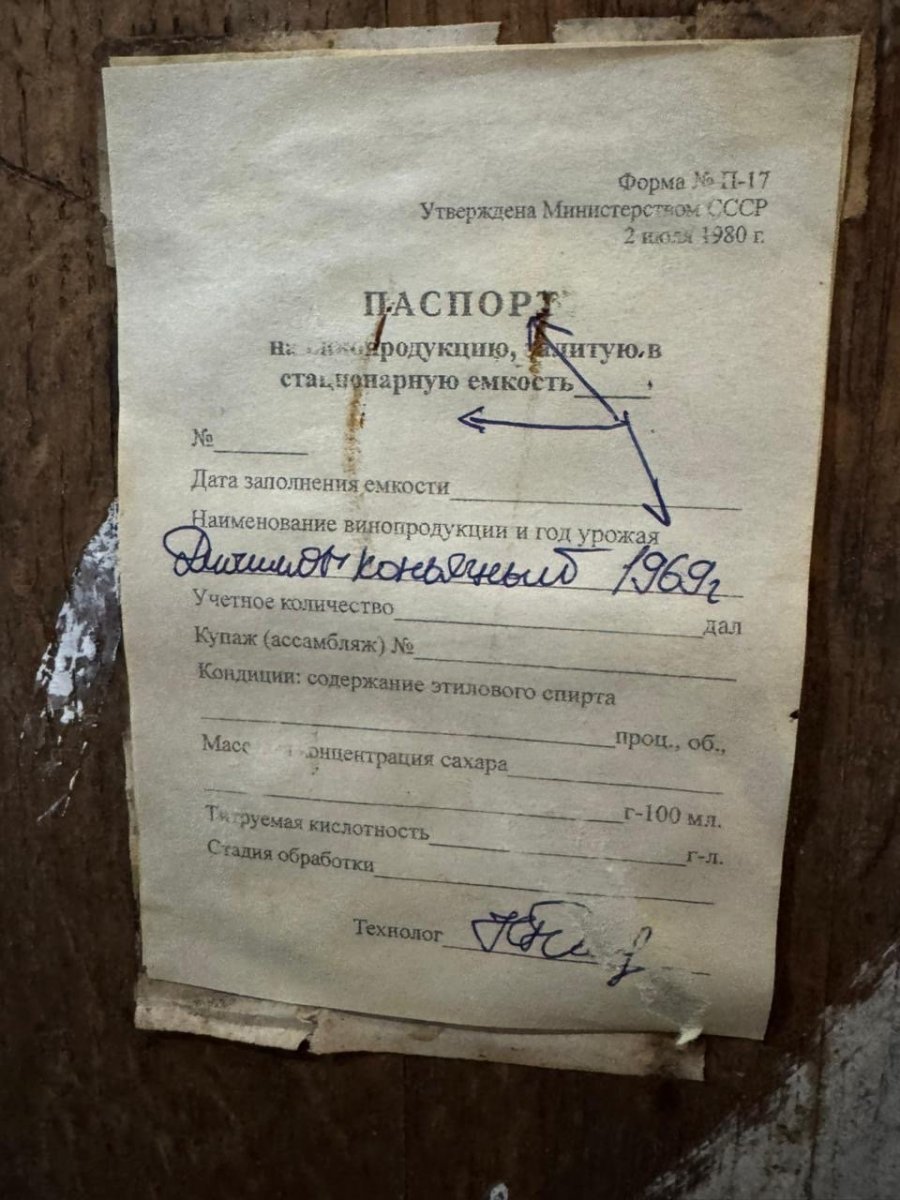 Форма № П-17
Утверждена Министерством СССР
2 июля 1980 г.
ПАСПОРТ
на винопродукцию, залитую в
стационарную емкость_____
№_______
Дата заполнения емкости______________________
Наименование винопродукции и год урожая
коньячный 1969г
Учетное количество_______________________дал
Купаж (ассамбляж) №________________________
Кондиции: содержание этилового спирта
________________________________проц., об.,
концентрация сахара________________
________________________________г-100 мл.
Титруемая кислотность___________________г-л.
Стадия обработки__________________________
Технолог____________________